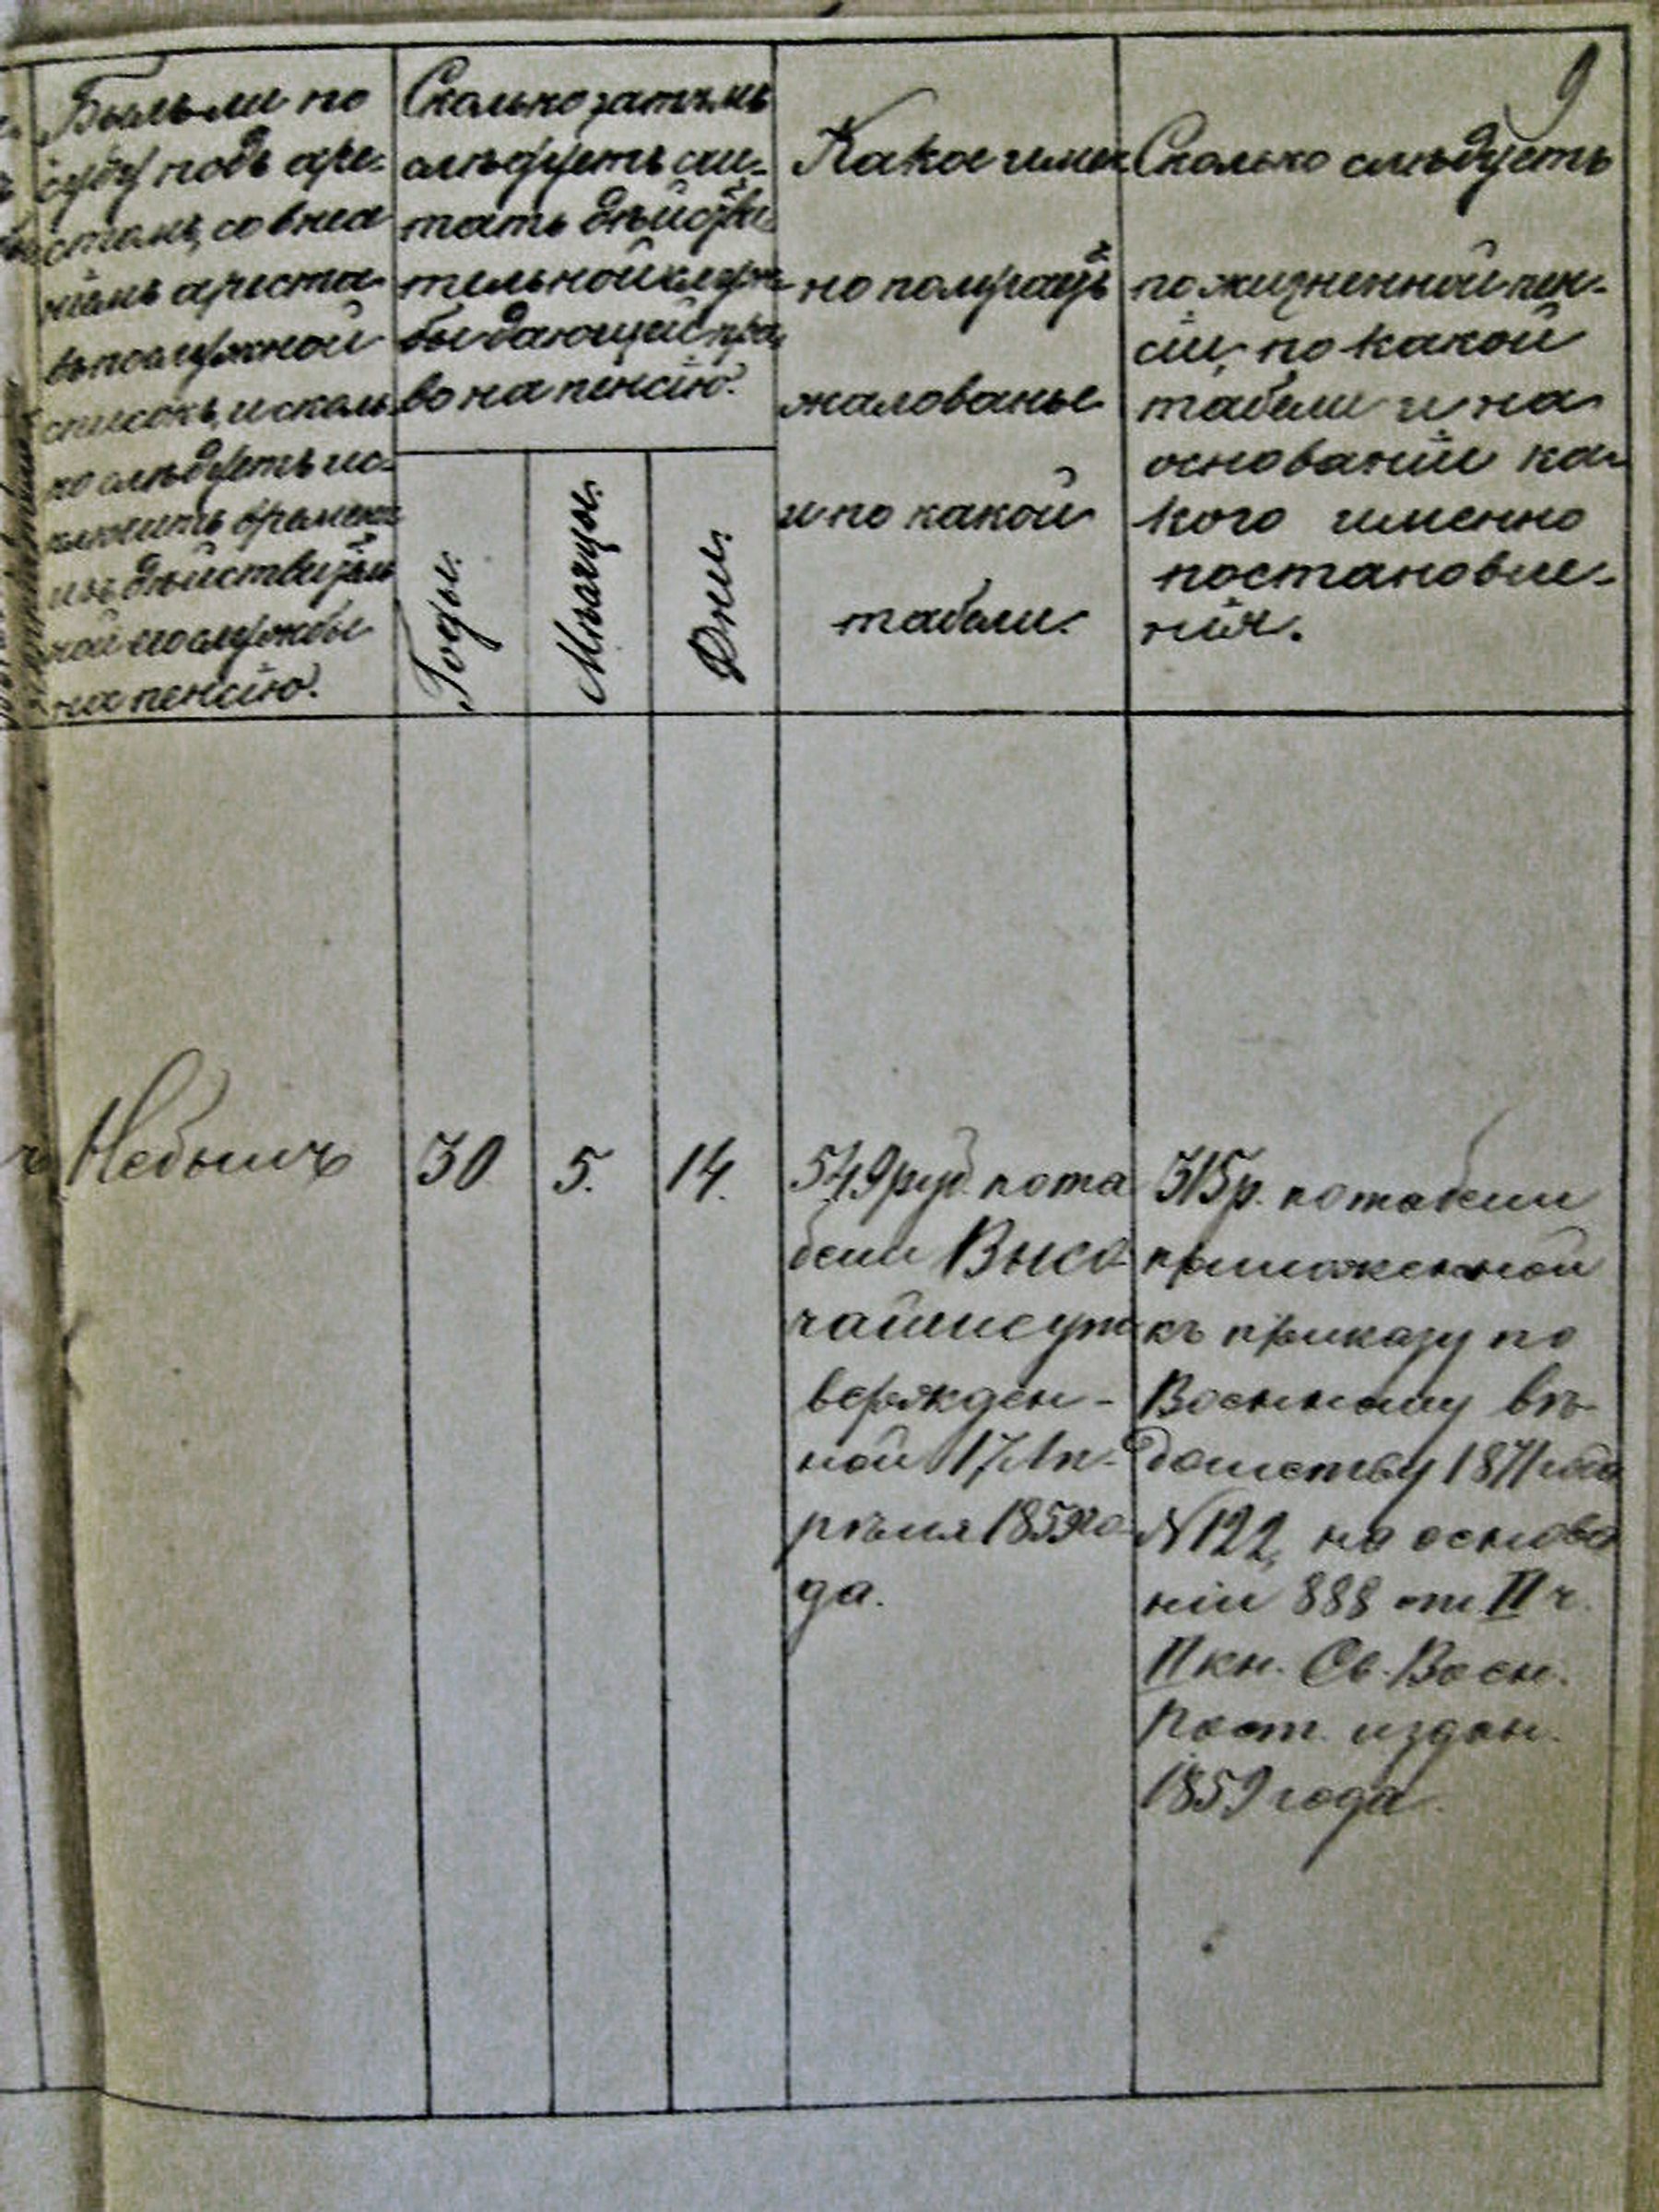 9
Былъ-ли по
суду подъ аре-
стомъ, со внесе
ніемъ ареста
въ послужной
списокъ, и сколь
ко слѣдуетъ ис-
ключить времени
изъ дѣйствитель
ной его службы
на пенсію.
Сколько затѣмъ
слѣдуетъ счи-
тать дѣйстви-
тельной служ-
бы дающей пра
во на пенсію.
Годы.
Мѣсяцы.
Дни.
Какое имен
но получаетъ
жалованье
и по какой
табели.
Сколько слѣдуетъ
пожизненной пен-
сіи, по какой
табели и на
основаніи ка-
кого именно
постановле-
нія.
Небылъ
30
5.
14.
549 руб. по та
бели Высо
чайше ут
вержден-
ной 17 Ап-
рѣля 1859 го
да.
315 р. по табели
приложенной
къ приказу по
Военному вѣ-
домству 1871 года
№ 122, на основа
ніи 888 ст. II ч.
II кн. Св. Воен.
Пост. издан.
1859 года.